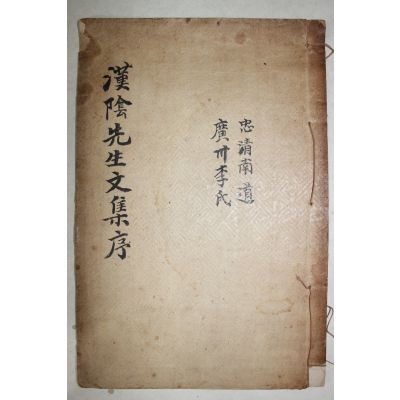 忠清南道
廣州李氏
漢陰先生文集序